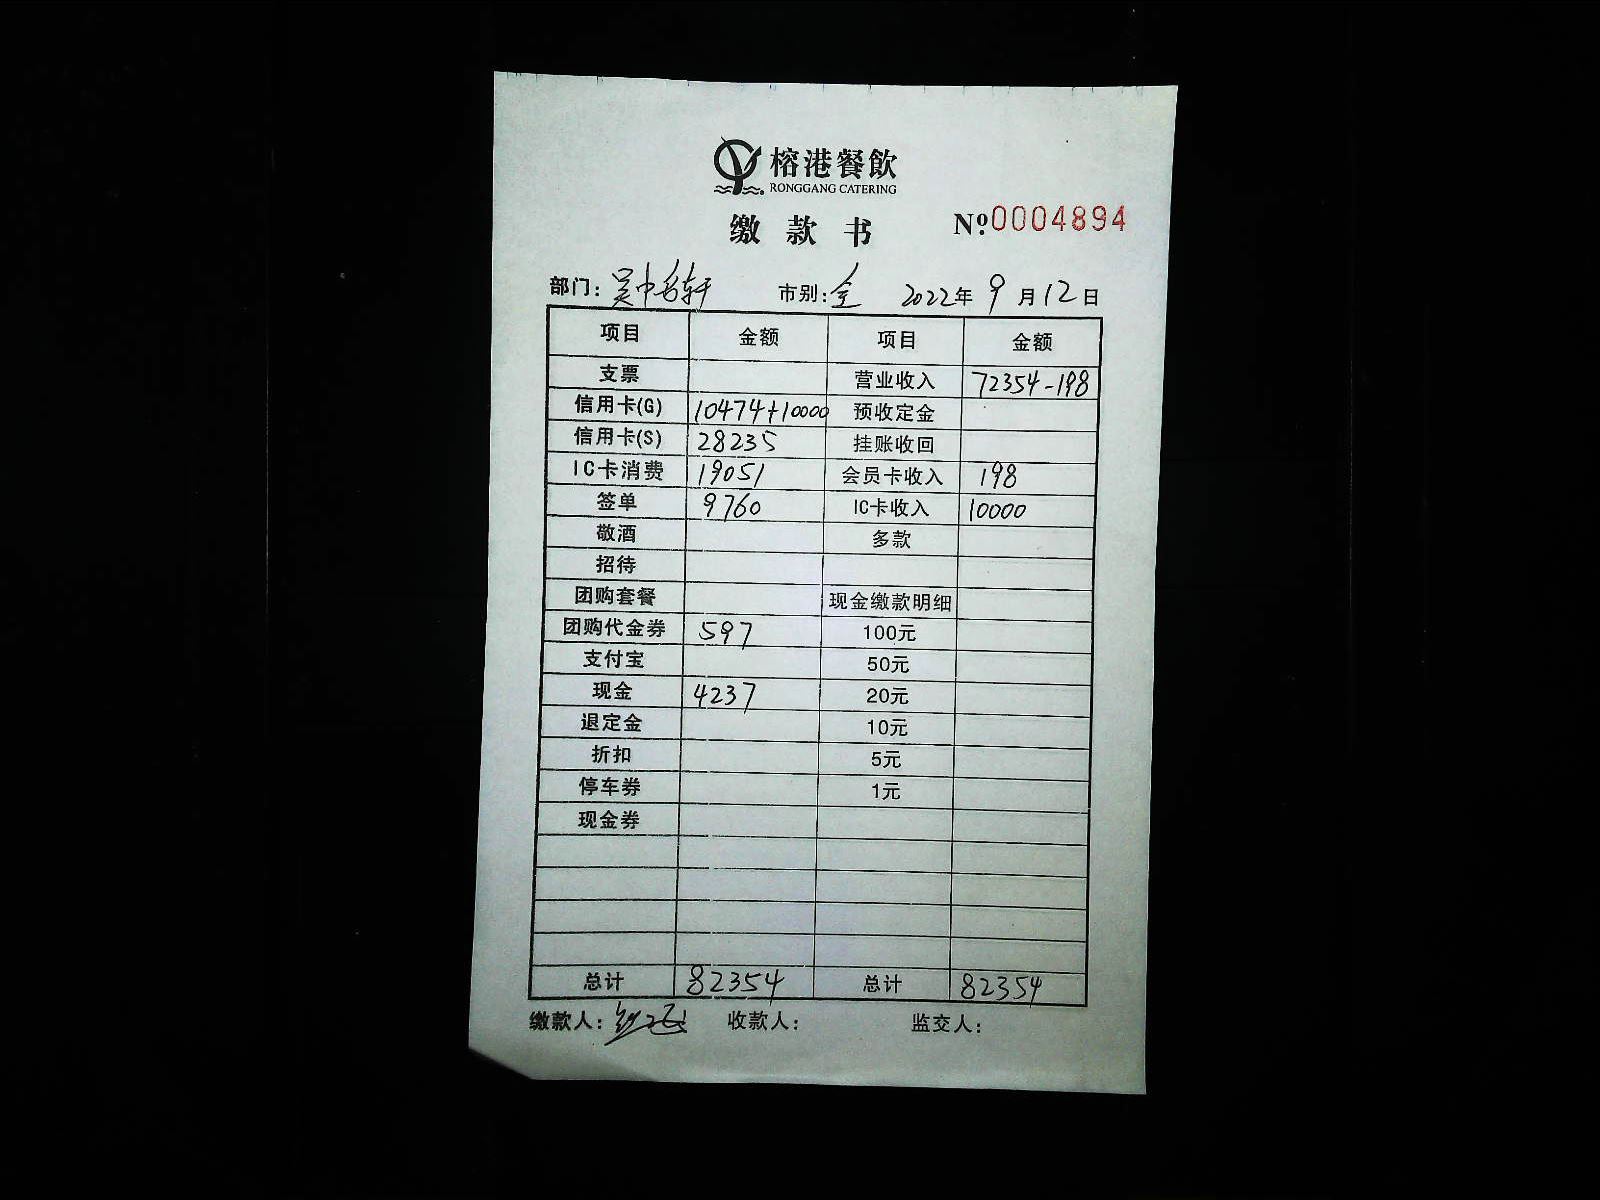 榕港餐飲
RONGGANG CATERING
缴款书 Nº:0004894
部门:吴中名轩 市别:全 2022年9月12日
项目 金额 项目 金额
支票 营业收入 72354-198
信用卡(G) 10474+10000 预收定金
信用卡(S) 28235 挂账收回
IC卡消费 19051 会员卡收入 198
签单 9760 IC卡收入 10000
敬酒 多款
招待
团购套餐 现金缴款明细
团购代金券 597 100元
支付宝 50元
现金 4237 20元
退定金 10元
折扣 5元
停车券 1元
现金券
总计 82354 总计 82354
缴款人: 收款人: 监交人: